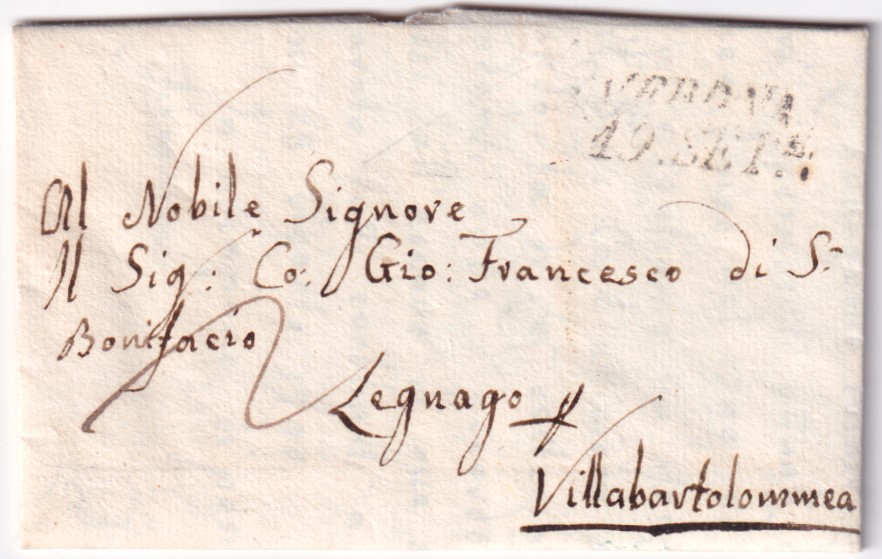 VERONA
19. SETE.
Al Nobile Signore
Il Sig: Co: Gio: Francesco di S:
Bonifacio
Legnago p
Villabartolommea